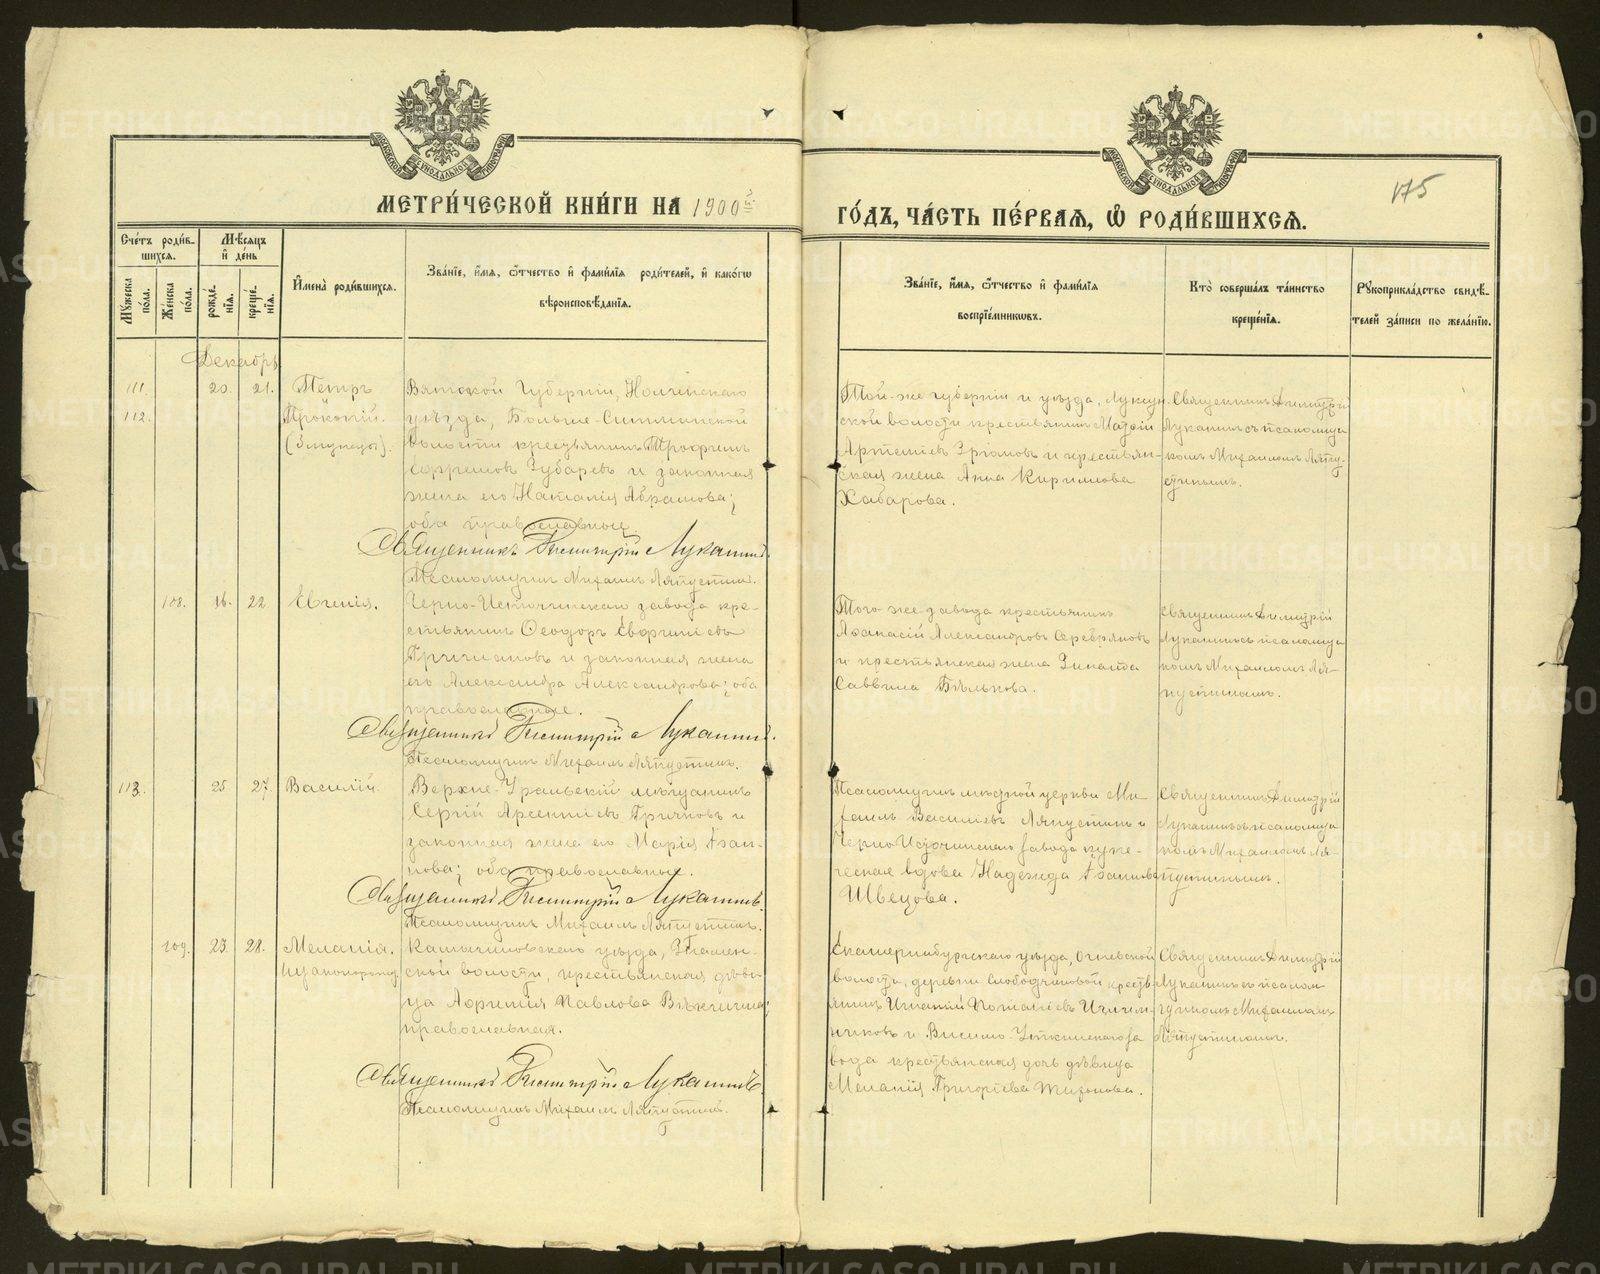 МЕТРИ́ЧЕСКОЙ КНИ́ГИ НА 1900й
ГО́ДЪ, ЧА́СТЬ ПЕ́РВАЯ, Ѡ РОДИ́ВШИХСЯ.
175
Сче́тъ роди́в-
шихся.
Мѣ́сяцъ
и҆ де́нь
Му́жеска
по́ла.
Же́нска
по́ла.
рожде́-
нїя.
креще́-
нїя.
И҆мена̀ роди́вшихся.
Зва́нїе, и҆́мя, ѻ҆́тчество и҆ фами́лїя роди́телей, и҆ како́гѡ
вѣроисповѣ́данїя.
Зва́нїе, и҆́мя, ѻ҆́тчество и҆ фами́лїя
воспрїе́мникѡвъ.
Кто̀ соверша́лъ та́инство
креще́нїя.
Рукоприкла́дство свидѣ́-
телей за́писи по жела́нїю.
Декабрь
111.
112.
20.
21.
Петръ
Прокопій.
(Близнецы).
Вятской Губерніи, Нолинскаго
уѣзда, Больше-Ситминской
волости крестьянинъ Трофимъ
Зубаревъ и законная
жена его Наталія Абрамова;
оба православные.
Священникъ Димитрій Лукашинъ.
Псаломщикъ Михаилъ Ляпустинъ.
Той-же губерніи и уѣзда,
ской волости крестьянинъ Матѳій
Артеміевъ и крестьян-
ская жена Анна Кирилова
Хабарова.
Священникъ Димитрій
Лукашинъ съ псаломщи
комъ Михаиломъ Ляпу-
стинымъ.
108.
16.
22
Евгенія.
Черно-Источинскаго завода кре-
стьянинъ Ѳеодоръ
и законная жена
его Александра Александрова; оба
православные.
Священникъ Димитрій Лукашинъ.
Псаломщикъ Михаилъ Ляпустинъ.
Того-же завода крестьянинъ
Аѳанасій Александровъ Серебряковъ
и крестьянская жена
Саввина Бѣлькова.
Священникъ Димитрій
Лукашинъ съ псаломщи
комъ Михаиломъ Ля-
пустинымъ.
113.
25
27
Василій.
Верхне-Уральскій мѣщанинъ
Сергій Арсеніевъ и
законная жена его Марія Іоан-
нова; оба православные.
Священникъ Димитрій Лукашинъ.
Псаломщикъ Михаилъ Ляпустинъ.
Псаломщикъ мѣстной церкви Ми
хаилъ Васильевъ Ляпустинъ и
Черно-Источинскаго завода купе-
ческая вдова Надежда Іоаннова
Швецова.
Священникъ Димитрій
Лукашинъ съ псаломщи
комъ Михаиломъ Ля-
пустинымъ.
109.
23
28.
Меланія.
Незаконнорожд.
Камышловскаго уѣзда, Знамен-
ской волости, крестьянская дѣви-
ца Павлова
православная.
Священникъ Димитрій Лукашинъ.
Псаломщикъ Михаилъ Ляпустинъ.
Екатеринбургскаго уѣзда,
волости, деревни Слободчиковой крестья
янинъ Игнатій
и Висимо-Уткинскаго за
вода крестьянская дочь дѣвица
Меланія Григорьева
Священникъ Димитрій
Лукашинъ съ псалом
щикомъ Михаиломъ
Ляпустинымъ.
METRIKI.GASO-URAL.RU